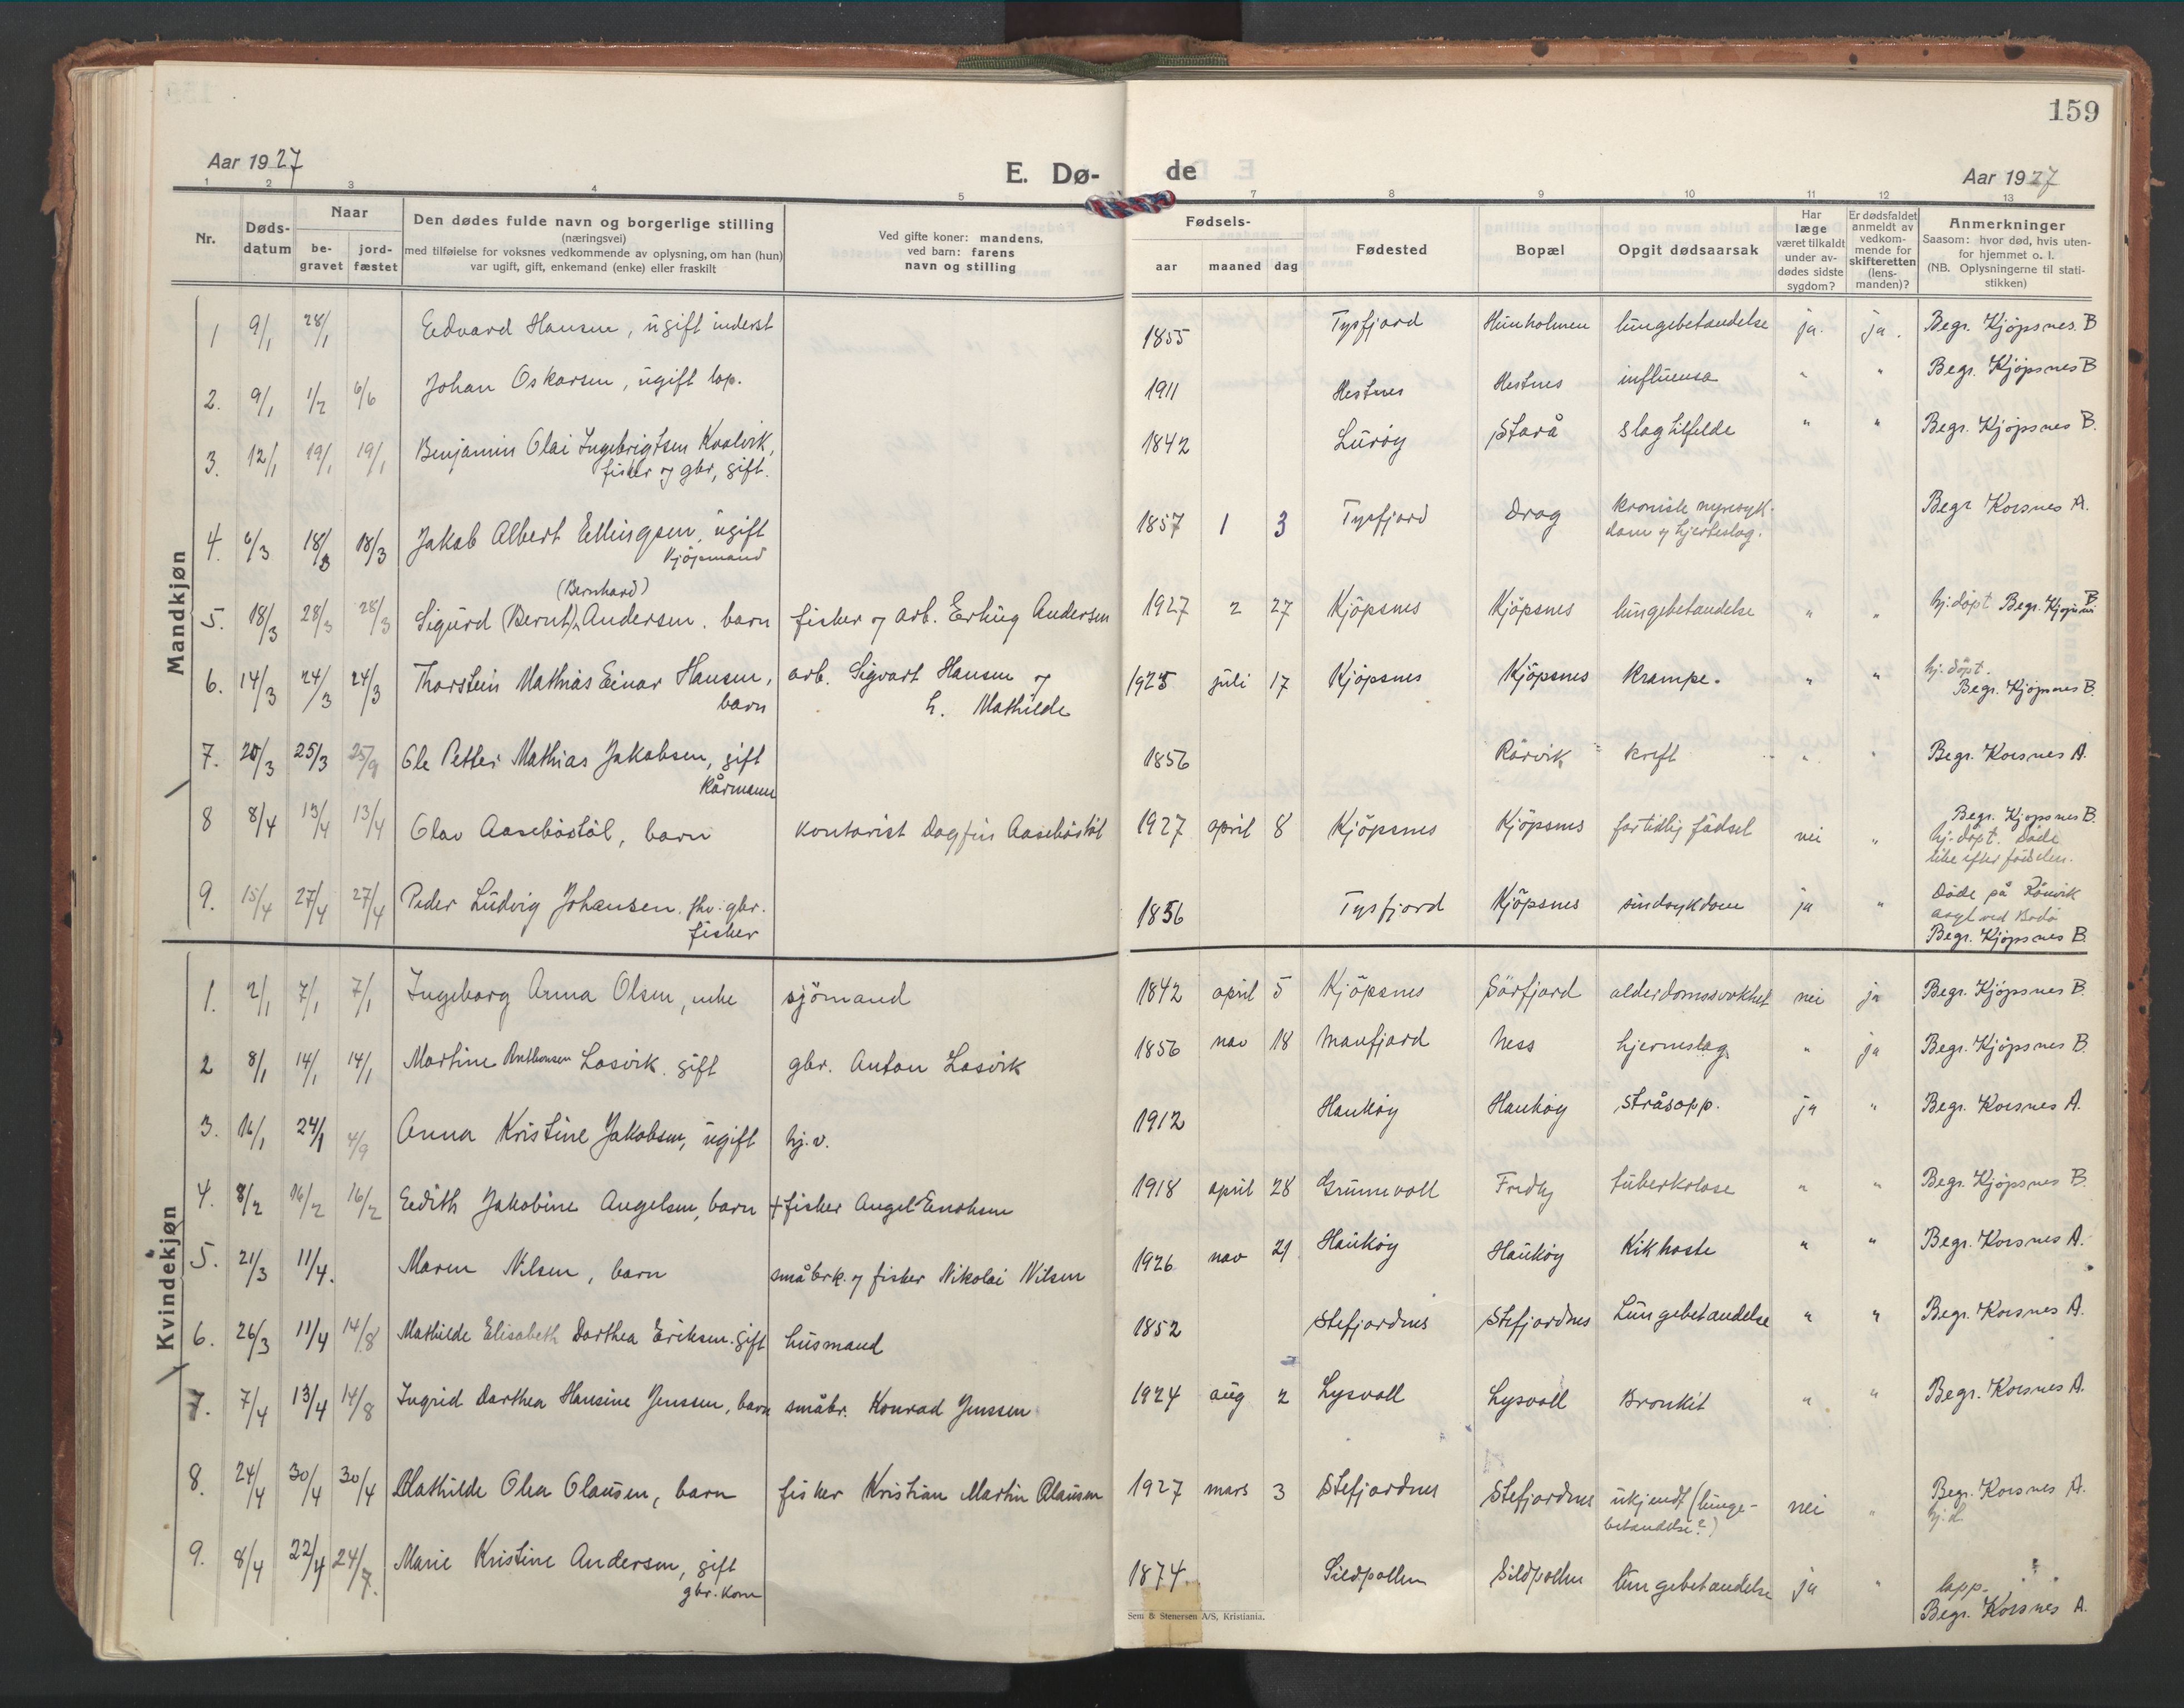 159
Aar 1927
E. Dø-
de
Aar 1927
1 2 3 4 5 7 8 9 10 11 12 13
Nr.
Døds-
datum
Naar
be-
gravet
jord-
fæstet
Den dødes fulde navn og borgerlige stilling
(næringsvei)
med tilføielse for voksnes vedkommende av oplysning, om han (hun)
var ugift, gift, enkemand (enke) eller fraskilt
Ved gifte koner: mandens,
ved barn: farens
navn og stilling
Fødsels-
aar maaned dag
Fødested
Bopæl
Opgit dødsaarsak
Har
læge
været tilkaldt
under av-
dødes sidste
sygdom?
Er dødsfaldet
anmeldt av
vedkom-
mende for
skifteretten
(lens-
manden)?
Anmerkninger
Saasom: hvor død, hvis uten-
for hjemmet o. l.
(NB. Oplysningerne til stati-
stikken)
Mandkjøn
1 9/1 28/1 Edvard Hansen, ugift inderst 1855 Tysfjord Hunholmen lungebetændelse ja. ja. Begr. Kjöpsnes. B
2. 9/1 1/2 6/6 Johan Oskarsen, ugift lap. 1911 Hestnes Hestnes influensa " " Begr. Kjöpsnes B
3. 12/1 19/1 19/1 Benjamin Olai Ingebrigtsen Kvalvik, 1842 Luröy Storå slagtilfelde " " Begr. Kjöpsnes B.
fisker og gbr, gift.
4. 6/3 18/3 18/3 Jakob Albert Ellingsen, ugift 1857 1 3 Tysfjord Drag kroniske nyresyk- Begr Korsnes A.
kjöpmand dom og hjerteslag.
(Bernhard)
5. 18/3 28/3 28/3 Sigurd (Bernt) Andersen. barn fisker og arb. Erling Andersen 1927 2 27 Kjöpsnes Kjöpsnes lungebetandelse " " hj.döpt Begr. Kjöpsnes B
6. 14/3 24/3 24/3 Thorstein Mathias Einar Hansen, arb. Sigvart Hansen og 1925 juli 17 Kjöpsnes Kjöpsnes Krampe. " " hj. döpt.
barn h. Mathilde Begr. Kjöpsnes B.
7. 20/3 25/3 25/9 Ole Petter Mathias Jakobsen, gift 1856 Rörvik kreft " " Begr. Korsnes A.
Kårmann
8 8/4 13/4 13/4 Olav Aaseböstöl, barn kontorist Dagfin Aaseböstöl 1927 april 8 Kjöpsnes Kjöpsnes fortidlig födsel nei " Begr. Kjöpsnes B.
hj. döpt. Döde
like efter födselen.
9. 15/4 27/4 27/4 Peder Ludvig Johansen. fhv. gbr. 1856 Tysfjord Kjöpsnes sindsykdom ja " Döde på Rönvik
fisker asyl ved Bodö
Begr. Kjöpsnes B.
Kvindekjøn
1. 2/1 7/1 7/1 Ingeborg Anna Olsen, enke sjömand 1842 april 5 Kjöpsnes Sörfjord alderdomssvakhet nei ja Begr. Kjöpsnes B.
2 8/1 14/1 14/1 Martine Anthonsen Losvik. gift gbr. Anton Losvik 1856 nov 18 Manfjord Ness hjerneslag " ja Begr. Kjöpsnes B.
3. 16/1 24/1 4/9 Anna Kristine Jakobsen, ugift hj. v. 1912 Hauköy Hauköy Stråsopp. ja " Begr. Korsnes A.
4. 8/2 16/2 16/2 Edith Jakobine Angelsen, barn + fisker Angel Enoksen 1918 april 28 Grunnevoll Fredly tuberkolose " " Begr. Kjöpsnes B.
5. 21/3 11/4. Maren Nilsen, barn småbrk. og fisker Nikolai Nilsen 1926 nov 21 Hauköy Hauköy Kikhoste " " Begr. Korsnes A.
6. 26/3 11/4 14/8 Mathilde Elisabeth Dorthea Eriksen. gift husmand 1852 Stefjordnes Stefjordnes Lungebetandelse " " Begr. Korsnes A.
7. 7/4 13/4 14/8 Ingrid Dorthea Hansine Jenssen, barn småbr. Konrad Jenssen 1924 aug 2 Lysvoll Lysvoll Bronkit " " Begr. Korsnes A.
8. 24/4 30/4 30/4 Mathilde Olea Olausen, barn fisker Kristian Martin Olausen 1927 mars 3 Stefjordnes Stefjordnes ukjendt (lunge- nei " Begr. Korsnes A.
betandelse?) hj.d.
9. 8/4 22/4 24/7. Marie Kristine Andersen, gift 1874. Sildpollen Sildpollen Lungebetandelse ja " lapp.
gbr. kone Begr. Korsnes A.
Sem & Stenersen A/S, Kristiania.